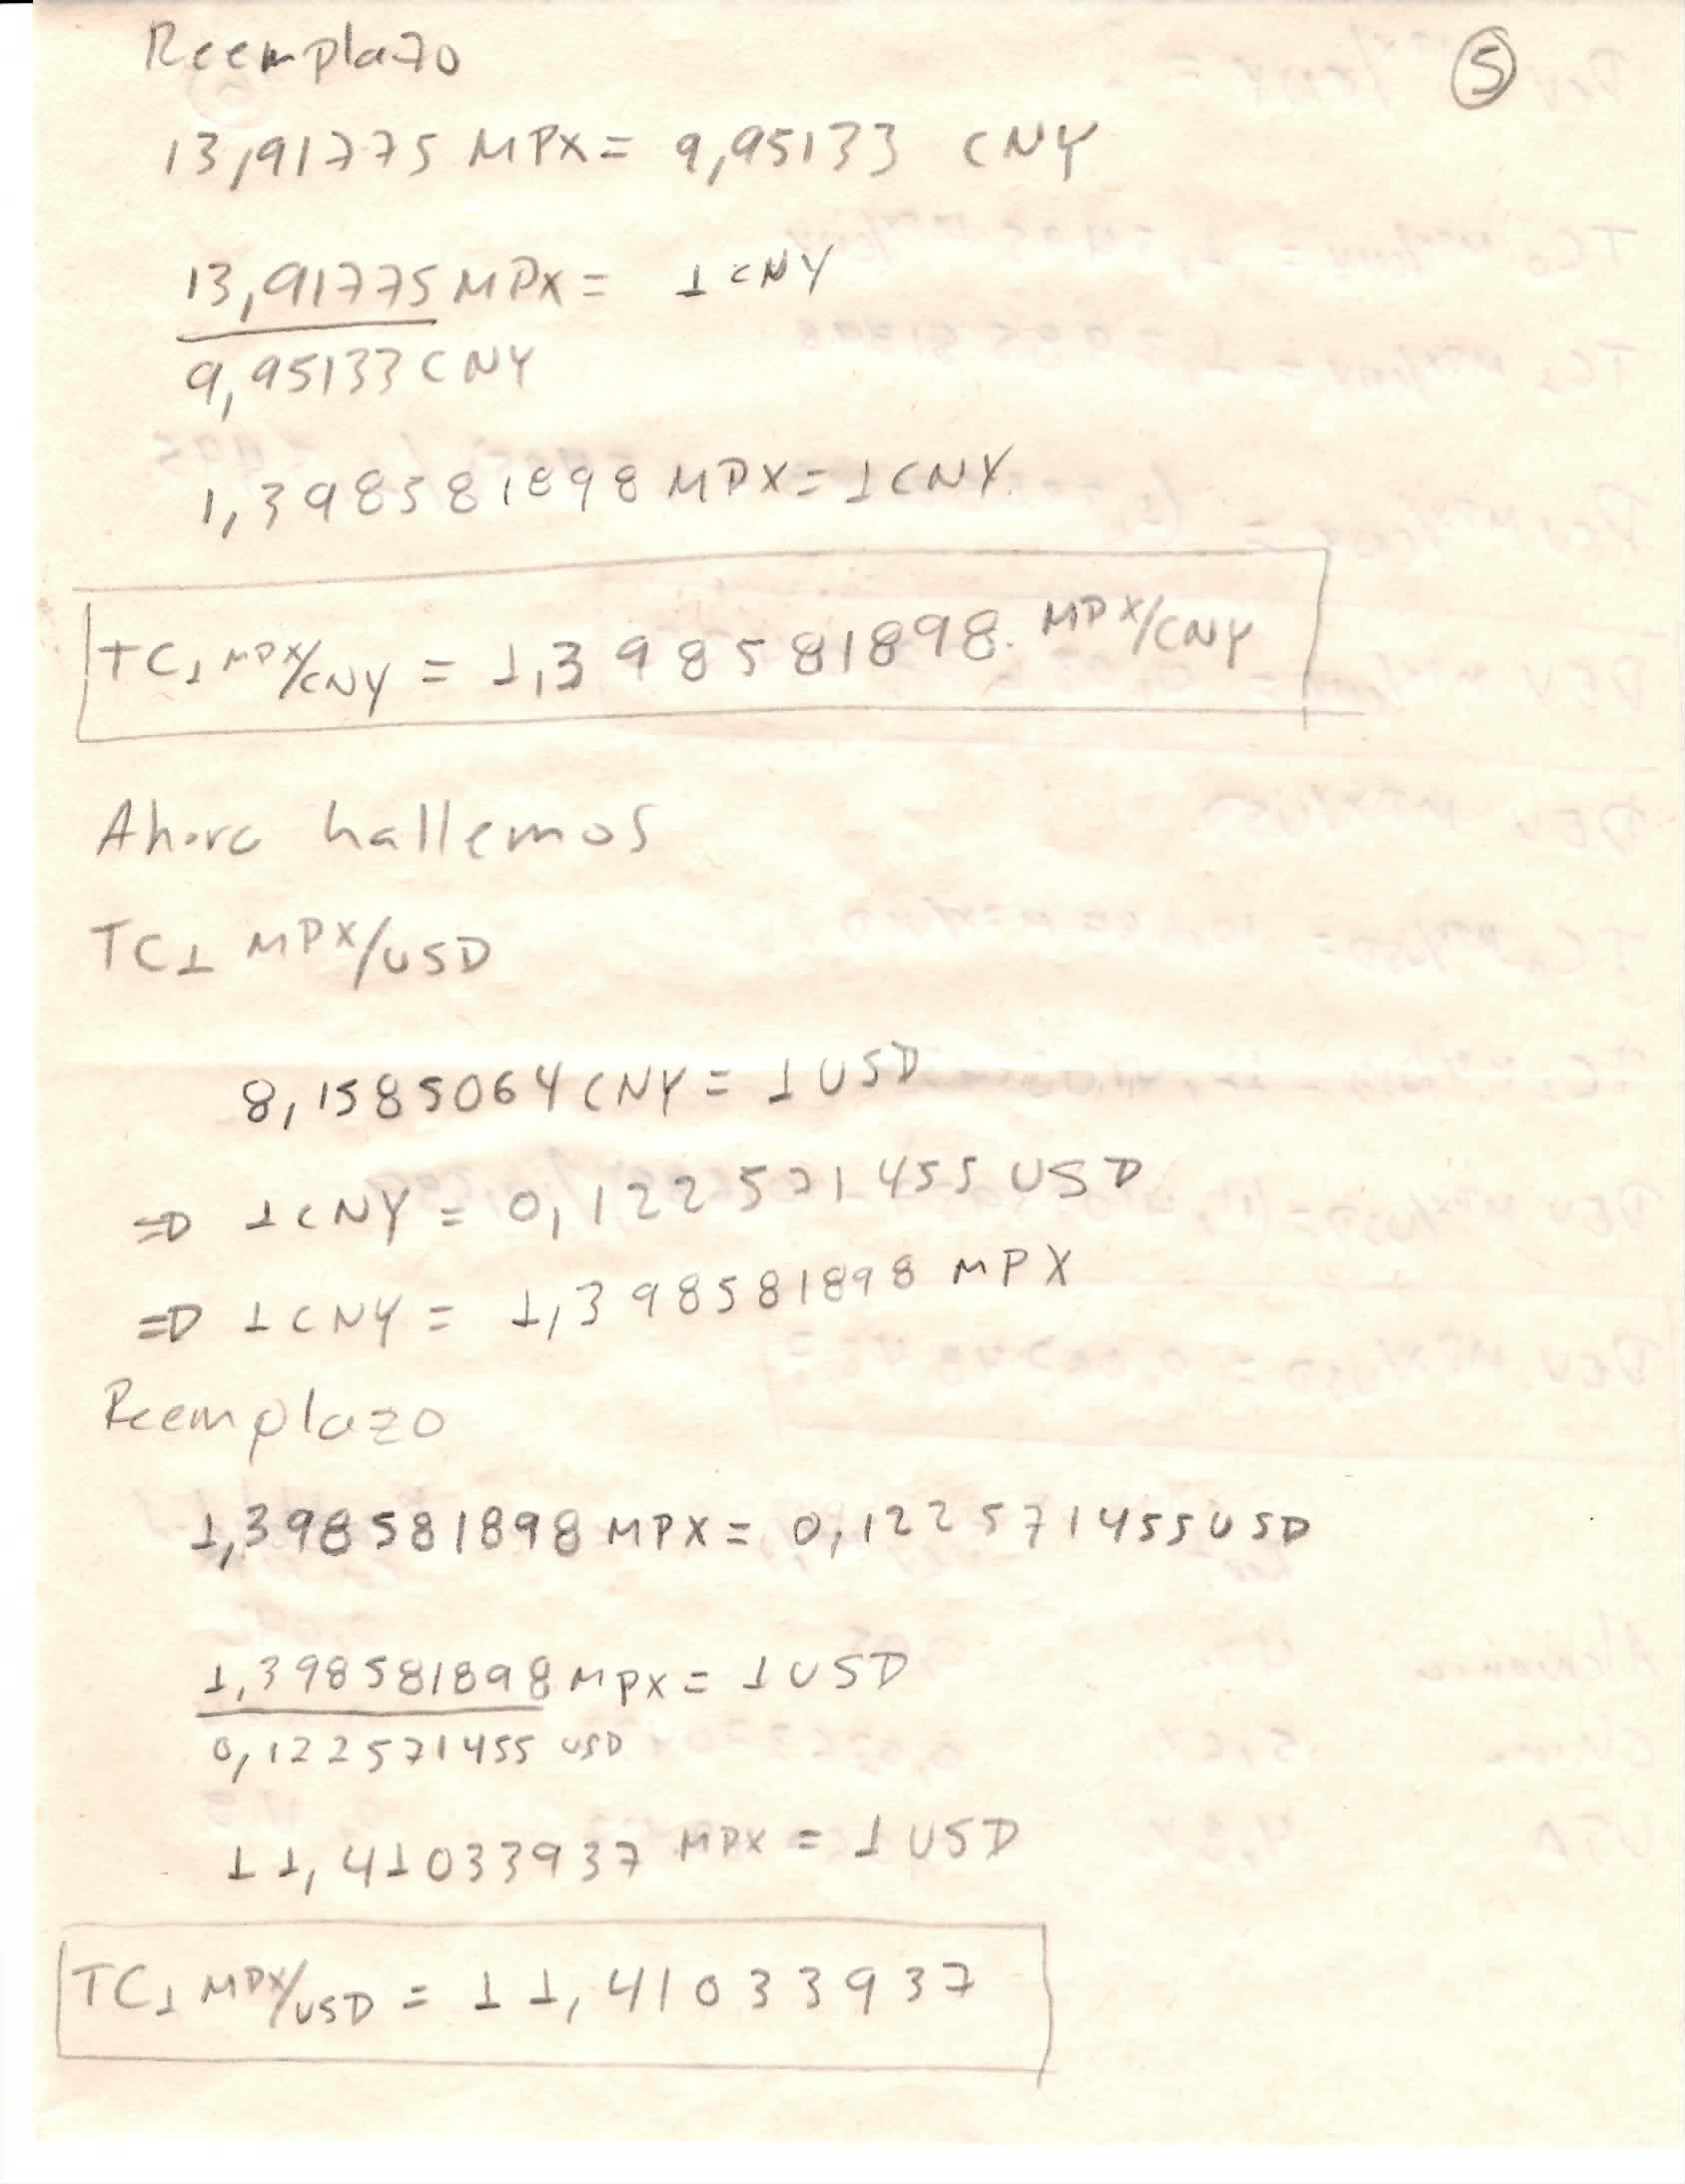 Reemplazo
5
13,91775 MPX = 9,95133 CNY
13,91775 MPX = 1 CNY
9,95133 CNY
1,398581898 MPX = 1 CNY
TC1 MPX/CNY = 1,398581898. MPX/CNY
Ahora hallemos
TC1 MPX/USD
8,1585064 CNY = 1 USD
⇒ 1 CNY = 0,122571455 USD
⇒ 1 CNY = 1,398581898 MPX
Reemplazo
1,398581898 MPX = 0,122571455 USD
1,398581898 MPX = 1 USD
0,122571455 USD
11,41033937 MPX = 1 USD
TC1 MPX/USD = 11,41033937